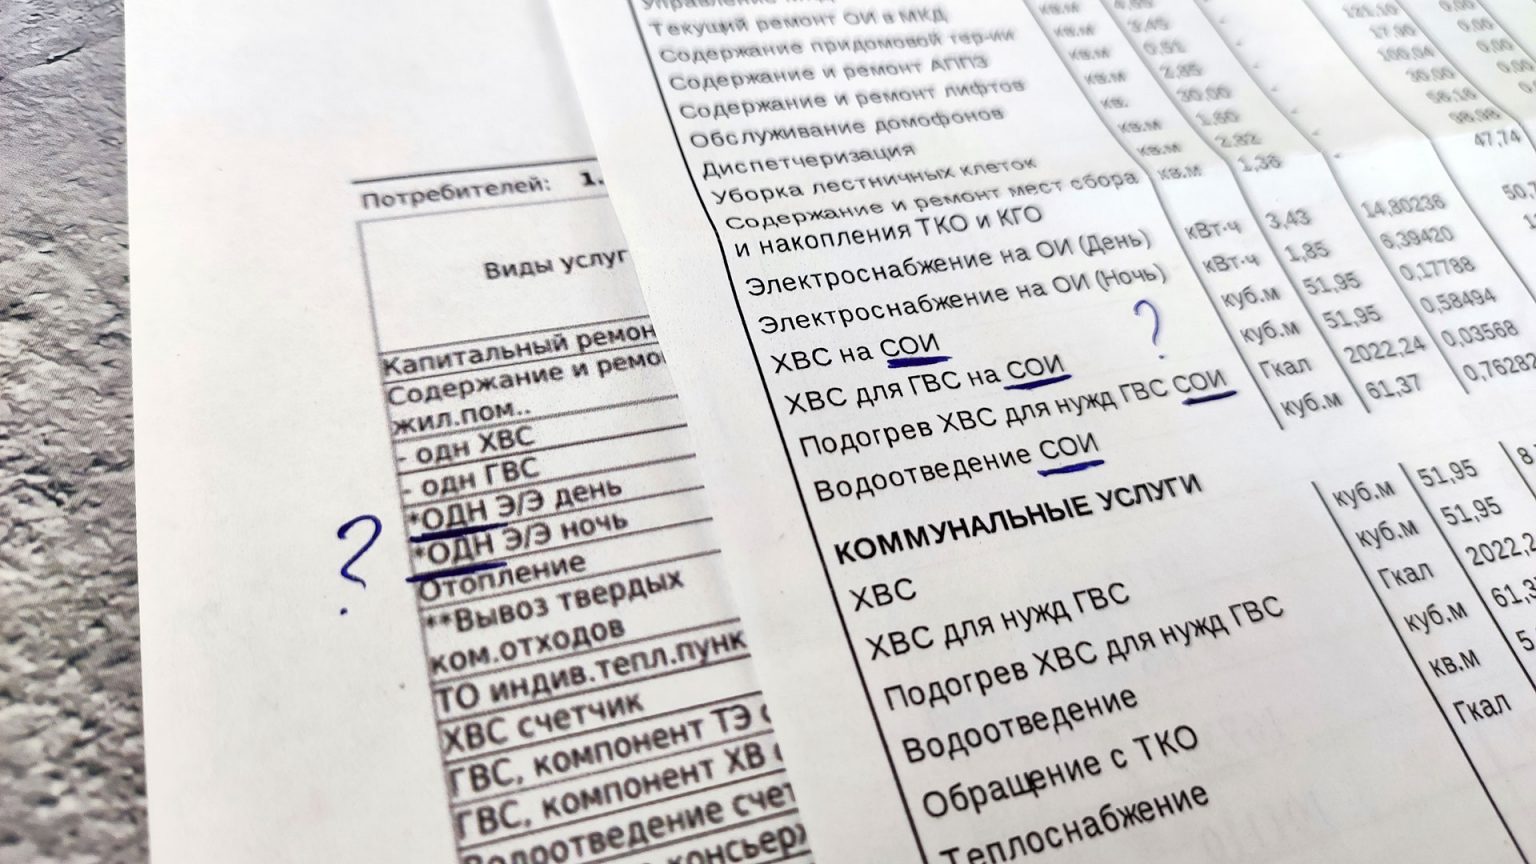 Потребителей: 1.
Виды услуг
Капитальный ремон
Содержание и ремо
жил.пом..
- одн ХВС
- одн ГВС
*ОДН Э/Э день
*ОДН Э/Э ночь
?
Отопление
**Вывоз твердых
ком.отходов
ТО индив.тепл.пунк
ХВС счетчик
ГВС, компонент ТЭ с
ГВС, компонент ХВ с
Водоотведение счет
консьерж
Текущий ремонт ОИ в МКД кв.м 3,45
Содержание придомовой тер-ии кв.м 0,51
Содержание и ремонт АППЗ кв.м 2,85
Содержание и ремонт лифтов кв.
Обслуживание домофонов 30,00
Диспетчеризация кв.м
Уборка лестничных клеток кв.м 2,82
Содержание и ремонт мест сбора кв.м 1,36 - 47,74
и накопления ТКО и КГО
Электроснабжение на ОИ (День) кВт·ч 3,43 14,80236 50,7
Электроснабжение на ОИ (Ночь) кВт·ч 1,85 6,39420
ХВС на СОИ куб.м 51,95 0,17788
ХВС для ГВС на СОИ ? куб.м 51,95 0,58494
Подогрев ХВС для нужд ГВС СОИ Гкал 2022,24 0,03568
Водоотведение СОИ куб.м 61,37 0,76282
КОММУНАЛЬНЫЕ УСЛУГИ
ХВС куб.м 51,95 8,
ХВС для нужд ГВС куб.м 51,95
Подогрев ХВС для нужд ГВС Гкал 2022,2
Водоотведение куб.м 61,3
Обращение с ТКО кв.м 5,
Теплоснабжение Гкал